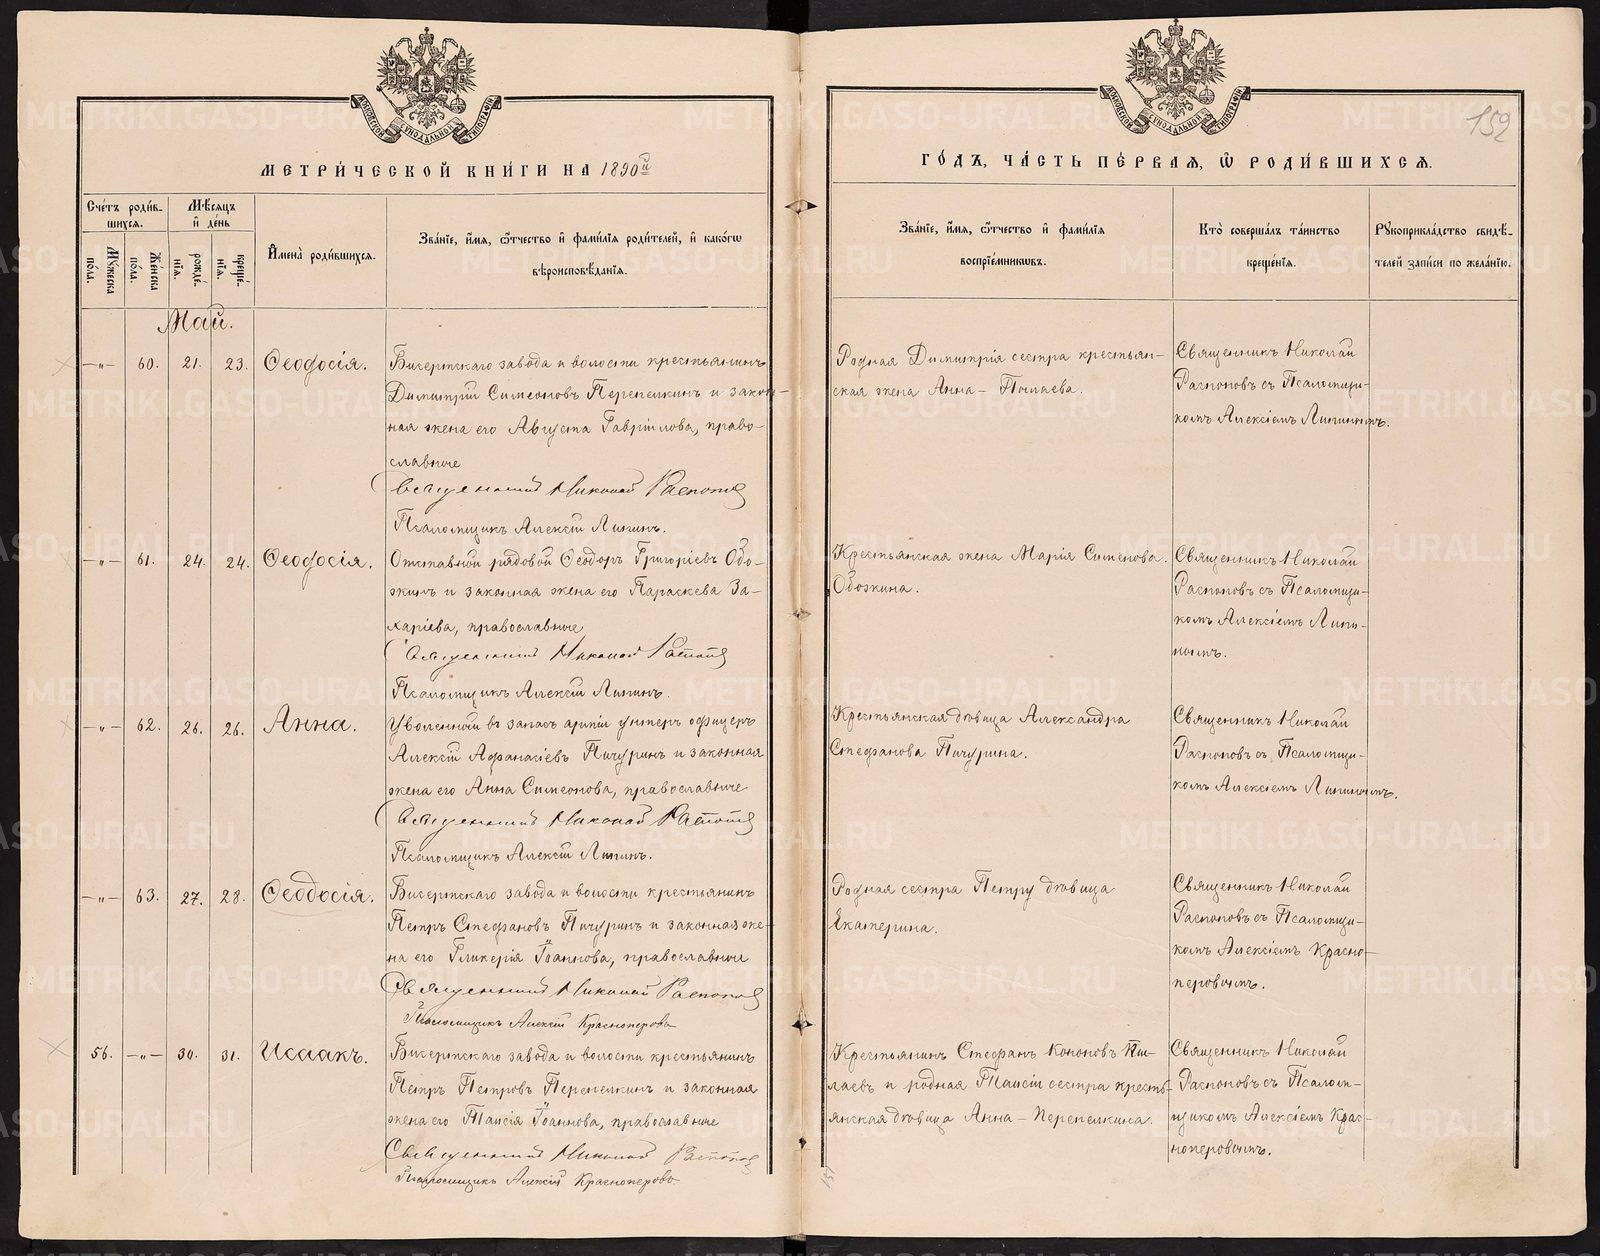 МОСКОВСКОЙ СѴНОДАЛЬНОЙ ТИПОГРАФІИ
МЕТРИ́ЧЕСКОЙ КНИ́ГИ НА 1890й
Сче́тъ роди́в-
шихсѧ.
Мѣ́сѧцъ
и҆ де́нь
Мꙋ́жеска
по́ла.
Же́нска
по́ла.
рожде́-
нїѧ.
креще́-
нїѧ.
И҆мена̀ роди́вшихсѧ.
Зва́нїе, и҆́мѧ, ѻ҆́тчество и҆ фами́лїѧ роди́телей, и҆ како́гѡ
вѣроисповѣ́данїѧ.
Май.
—"— 60. 21. 23. Ѳеодосія.
Бисертскаго завода и волости крестьянинъ
Димитрій Симеоновъ Перепелкинъ и закон-
ная жена его Августа Гавріилова, право-
славные
Священникъ Николай Распоповъ
Псаломщикъ Алексій Липинъ.
—"— 61. 24. 24. Ѳеодосія.
Отставной рядовой Ѳеодоръ Григоріевъ Обо-
жинъ и законная жена его Параскева За-
харіева, православные
Священникъ Николай Распоповъ
Псаломщикъ Алексій Липинъ.
—"— 62. 26. 26. Анна.
Уволенный въ запасъ арміи унтеръ офицеръ
Алексій Афанасіевъ Пичугинъ и законная
жена его Анна Симеонова, православные
Священникъ Николай Распоповъ
Псаломщикъ Алексій Липинъ.
—"— 63. 27. 28. Ѳеодосія.
Бисертскаго завода и волости крестьянинъ
Петръ Стефановъ Пичугинъ и законная же-
на его Гликерія Іоаннова, православные
Священникъ Николай Распоповъ
Псаломщикъ Алексій Красноперовъ
56. —"— 30. 31. Исаакъ.
Бисертскаго завода и волости крестьянинъ
Петръ Петровъ Перепелкинъ и законная
жена его Таисія Іоаннова, православные
Священникъ Николай Распоповъ
Псаломщикъ Алексій Красноперовъ
МОСКОВСКОЙ СѴНОДАЛЬНОЙ ТИПОГРАФІИ
152
ГО́ДЪ, ЧА́СТЬ ПЕ́РВАѦ, Ѡ҆ РОДИ́ВШИХСѦ.
Зва́нїе, и҆́мѧ, ѻ҆́тчество и҆ фами́лїѧ
воспрїе́мникѡвъ.
Кто̀ соверша́лъ та́инство
креще́нїѧ.
Рꙋкоприкла́дство свидѣ́-
телей за́писи по жела́нїю.
Родная Димитрія сестра крестьян-
ская жена Анна — Пылаева.
Священникъ Николай
Распоповъ съ Псаломщи-
комъ Алексіемъ Липинымъ.
Крестьянская жена Марія Симеонова
Обожина.
Священникъ Николай
Распоповъ съ Псаломщи-
комъ Алексіемъ Липи-
нымъ.
Крестьянская дѣвица Александра
Стефанова Пичугина.
Священникъ Николай
Распоповъ съ Псаломщи-
комъ Алексіемъ Липинымъ.
Родная сестра Петру дѣвица
Екатерина.
Священникъ Николай
Распоповъ съ Псаломщи-
комъ Алексіемъ Красно-
перовымъ.
Крестьянинъ Стефанъ Кононовъ Пы-
лаевъ и родная Таисіи сестра кресть-
янская дѣвица Анна — Перепелкина.
Священникъ Николай
Распоповъ съ Псалом-
щикомъ Алексіемъ Крас-
ноперовымъ.
METRIKI.GASO-URAL.RU